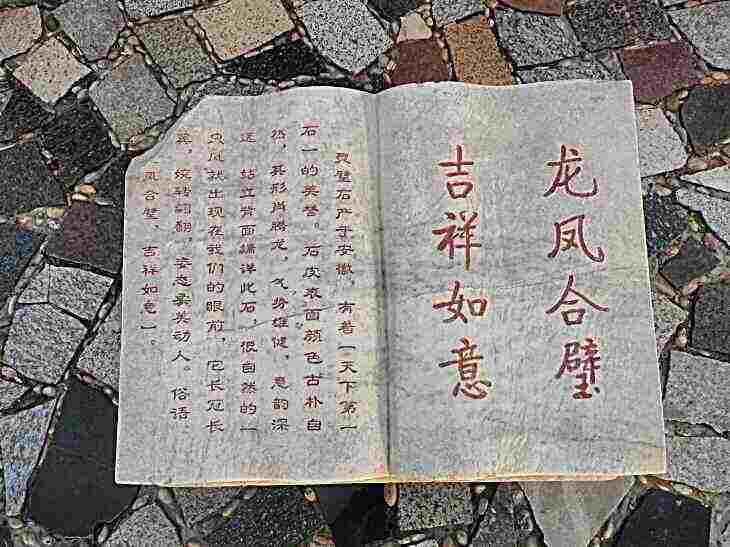 龙凤合璧
吉祥如意
灵璧石产于安徽，有着「天下第一
石」的美誉。石皮表面颜色古朴自
然，其形肖腾龙，气势雄健，意韵深
远。站立背面端详此石，很自然的一
只凤就出现在我们的眼前，它长冠长
翼，婉转翩翻，姿态柔美动人。俗语
凤合璧，吉祥如意」。